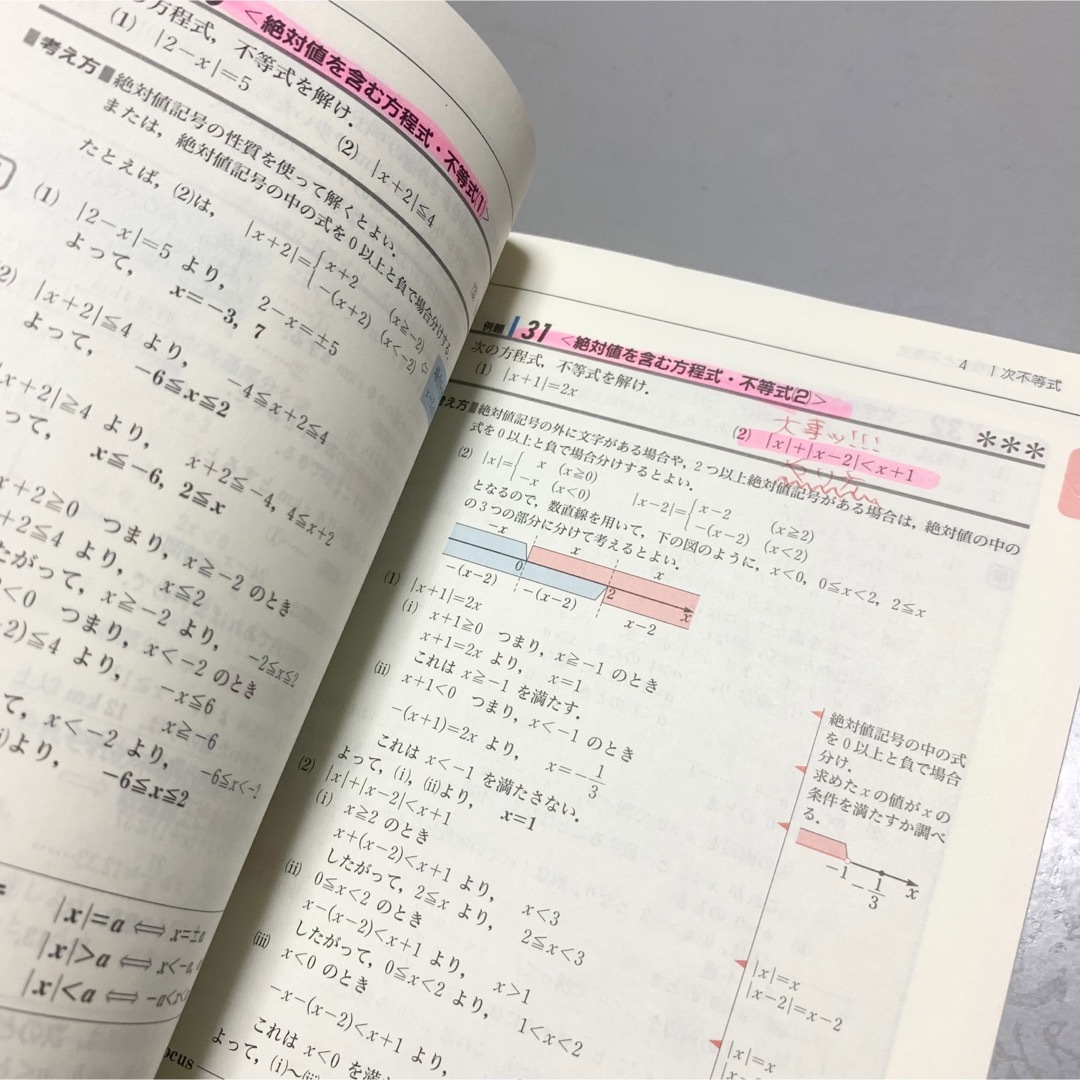 <絶対値を含む方程式・不等式(1)>
の方程式，不等式を解け．
(1) |2−x|=5
(2) |x+2|≦4
■考え方■絶対値記号の性質を使って解くとよい．
または，絶対値記号の中の式を0以上と負で場合分けする．
たとえば，(2)は，|x+2|={x+2 (x≧−2)
−(x+2) (x<−2)
(1) |2−x|=5 より，2−x=±5
よって，x=−3, 7
|x+2|≦4 より，−4≦x+2≦4
よって，−6≦x≦2
x+2|≧4 より，x+2≦−4, 4≦x+2
x≦−6, 2≦x
x+2≧0 つまり，x≧−2 のとき
x+2≦4 より，x≦2
したがって，x≧−2 より，−2≦x≦2
<0 つまり，x<−2 のとき
2)≦4 より，−x≦6
x≧−6
て，x<−2 より，−6≦x<−2
より，−6≦x≦2
|x|=a ⇔ x=±a
|x|>a ⇔ x<−a,
|x|<a ⇔ −a<x<
4 1次不等式
例題 31 <絶対値を含む方程式・不等式(2)>
***
次の方程式，不等式を解け．
(1) |x+1|=2x
大事ッ!!!
(2) |x|+|x−2|<x+1
え方■絶対値記号の外に文字がある場合や，2つ以上絶対値記号がある場合は，絶対値の中の
式を0以上と負で場合分けするとよい．
(2) |x|={x (x≧0) |x−2|={x−2 (x≧2)
−x (x<0) −(x−2) (x<2)
となるので，数直線を用いて，下の図のように，x<0, 0≦x<2, 2≦x
の3つの部分に分けて考えるとよい．
−x x x
0 2 x
−(x−2) −(x−2) x−2
(1) |x+1|=2x
(i) x+1≧0 つまり，x≧−1 のとき
x+1=2x より，x=1
これは x≧−1 を満たす．
(ii) x+1<0 つまり，x<−1 のとき
−(x+1)=2x より，x=−1/3
これは x<−1 を満たさない．
よって，(i), (ii)より，x=1
(2) |x|+|x−2|<x+1
(i) x≧2 のとき
x+(x−2)<x+1 より，x<3
したがって，2≦x より，2≦x<3
(ii) 0≦x<2 のとき
x−(x−2)<x+1 より，x>1
したがって，0≦x<2 より，1<x<2
(iii) x<0 のとき
−x−(x−2)<x+1 より，
これは x<0 を満た
よって，(i)〜(iii)
ocus
絶対値記号の中の式
を0以上と負で場合
分け．
求めたxの値がxの
条件を満たすか調べ
る．
−1 −1/3 x
|x|=x
|x−2|=x−2
|x|=x